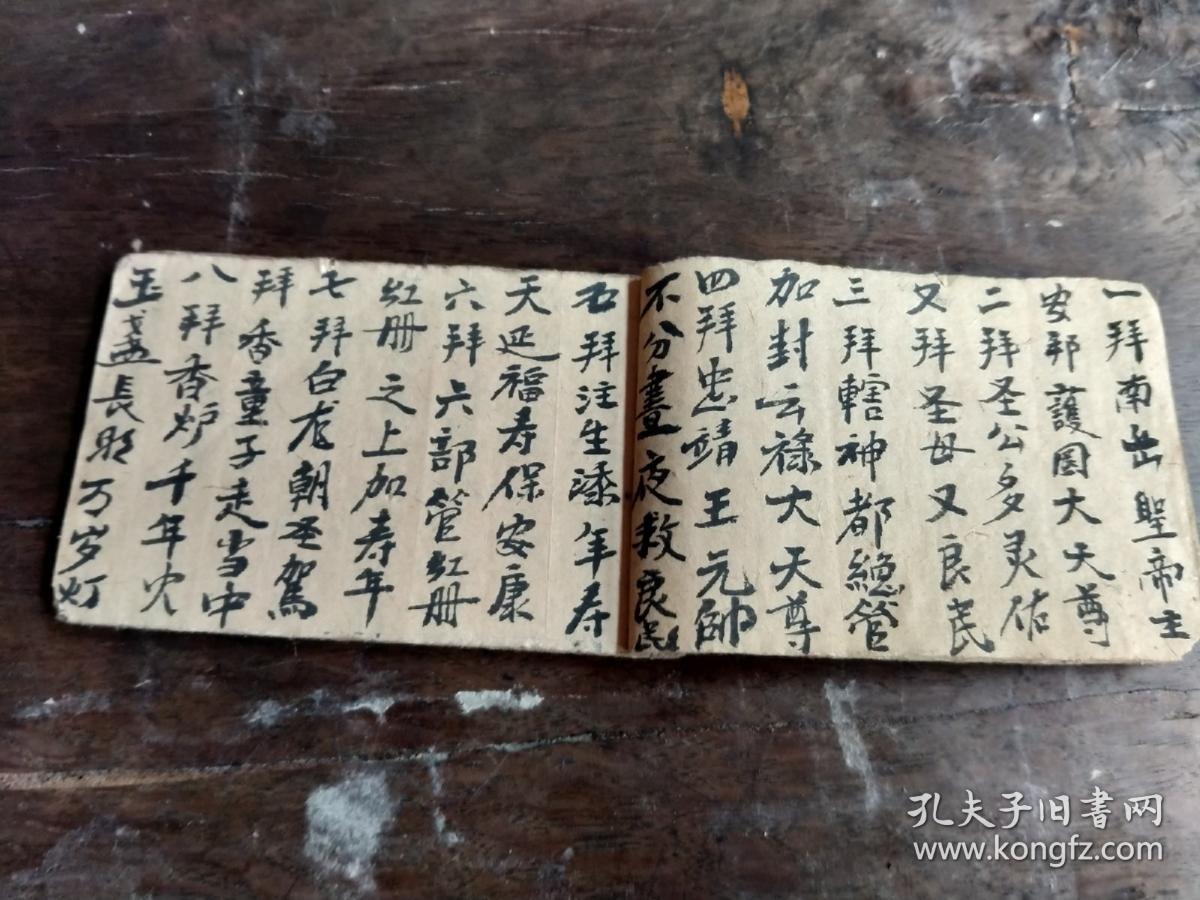 一拜南岳聖帝主
安邦護国大天尊
二拜圣公多灵佑
又拜圣母又良民
三拜轄神都總管
加封云禄大天尊
四拜忠靖王元帥
不分晝夜救良民
五拜注生添年寿
天延福寿保安康
六拜六部管红册
红册之上加寿年
七拜白龙朝圣駕
拜香童子走当中
八拜香炉千年火
玉盏長明万岁灯
孔夫子旧书网
www.kongfz.com